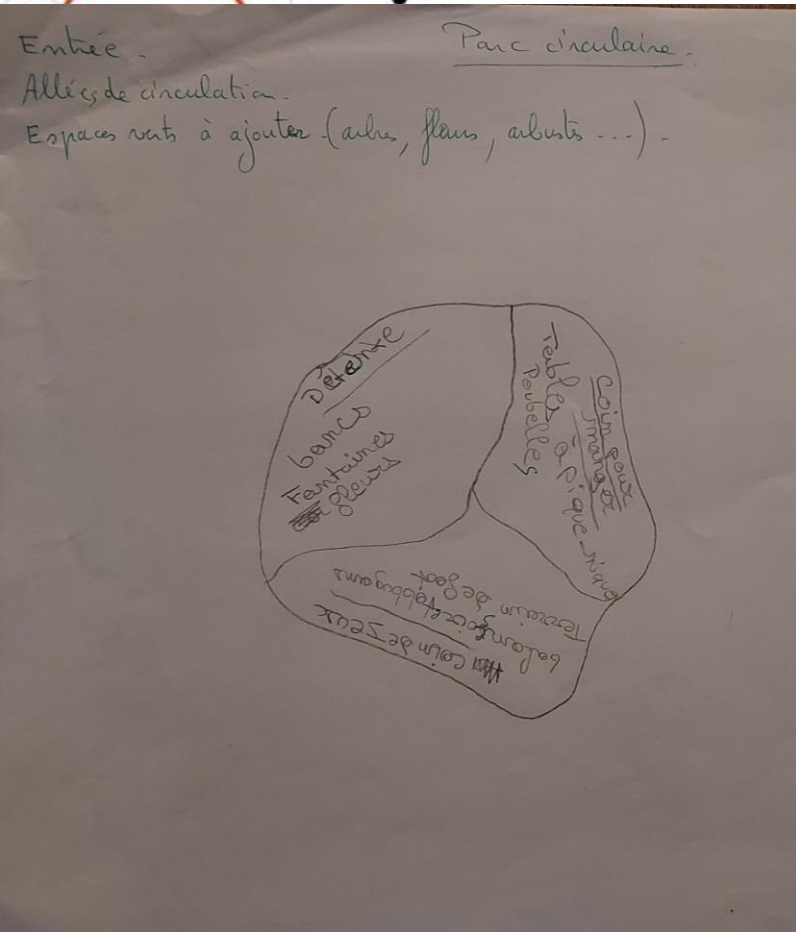 Entrée.
Parc circulaire.
Allées de circulation.
Espaces verts à ajouter (arbres, fleurs, arbustes ...).
Détente
bancs
Fontaines
fleurs
Coin pour
manger
Tables à pique-nique
Poubelles
coin de Jeux
balançoire tobbogans
Terrain de foot